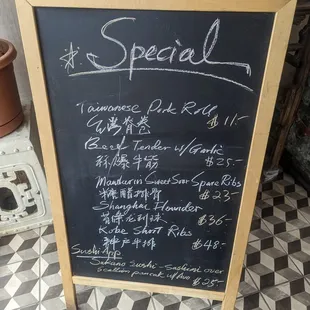 Special
Taiwanese Pork Roll
台灣脊卷 $11.-
Beef Tender w/Garlic
蒜爆牛筋 $25.-
Mandarin Sweet Sour Spare Ribs
糖醋排骨 $23.-
Shanghai Flounder
$36.-
Kobe Short Ribs
神戶牛排 $48.-
Sushi App
Sushi - Sashimi over
Scallion pancake w/Two
$25.-